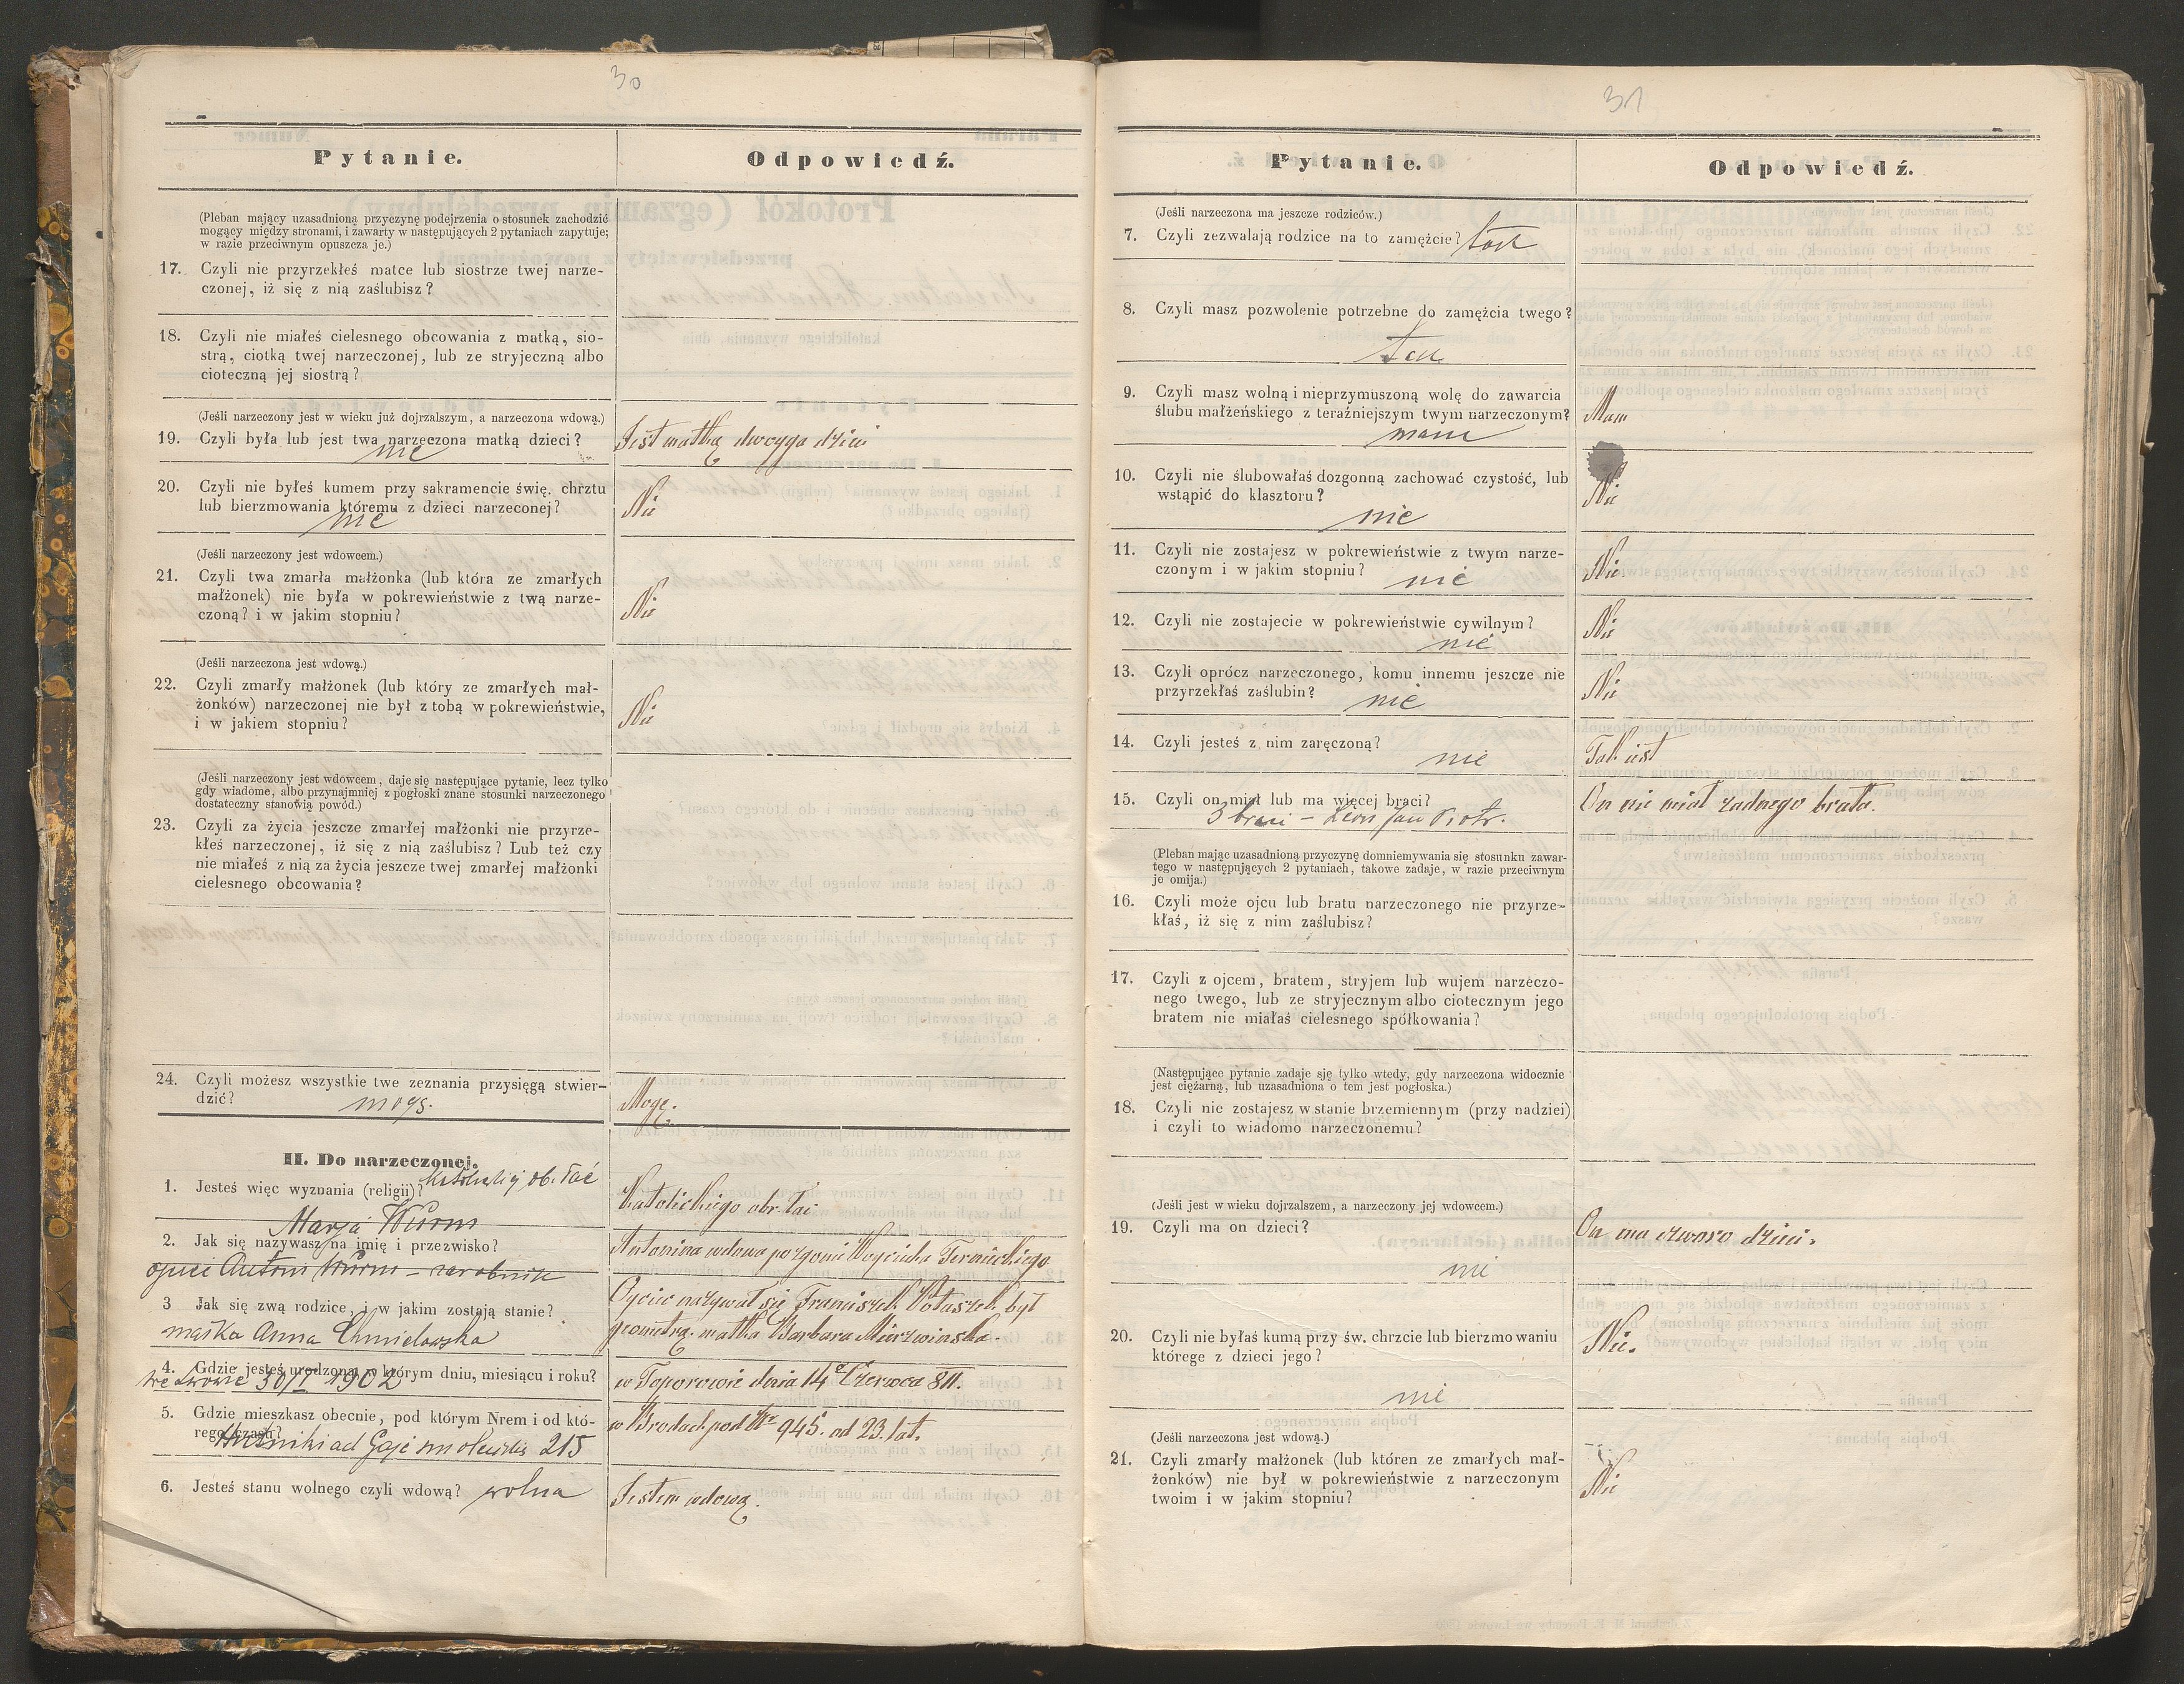 30
Pytanie.
Odpowiedź.
(Pleban mający uzasadnioną przyczynę podejrzenia o stosunek zachodzić
mogący między stronami, i zawarty w następujących 2 pytaniach zapytuje;
w razie przeciwnym opuszcza je.)
17. Czyli nie przyrzekłeś matce lub siostrze twej narze-
czonej, iż się z nią zaślubisz?
18. Czyli nie miałeś cielesnego obcowania z matką, sio-
strą, ciotką twej narzeczonej, lub ze stryjeczną albo
cioteczną jej siostrą?
(Jeśli narzeczony jest w wieku już dojrzalszym, a narzeczona wdową.)
19. Czyli była lub jest twa narzeczona matką dzieci?
nie
Jest matką dwojga dzieci
20. Czyli nie byłeś kumem przy sakramencie świę. chrztu
lub bierzmowania któremu z dzieci narzeconej?
nie
Nie
(Jeśli narzeczony jest wdowcem.)
21. Czyli twa zmarła małżonka (lub która ze zmarłych
małżonek) nie była w pokrewieństwie z twą narze-
czoną? i w jakim stopniu?
Nie
(Jeśli narzeczona jest wdową.)
22. Czyli zmarły małżonek (lub który ze zmarłych mał-
żonków) narzeczonej nie był z tobą w pokrewieństwie,
i w jakiem stopniu?
Nie
(Jeśli narzeczony jest wdowcem, daje się następujące pytanie, lecz tylko
gdy wiadome, albo przynajmniej z pogłoski znane stosunki narzeczonego
dostateczny stanowią powód.)
23. Czyli za życia jeszcze zmarłej małżonki nie przyrze-
kłeś narzeczonej, iż się z nią zaślubisz? Lub też czy
nie miałeś z nią za życia jeszcze twej zmarłej małżonki
cielesnego obcowania?
24. Czyli możesz wszystkie twe zeznania przysięgą stwier-
dzić?
mogę.
Mogę.
II. Do narzeczonej.
1. Jesteś więc wyznania (religii)?
ob. łać
Katolickiego obr. łać
Marja Wurm
2. Jak się nazywasz na imię i przezwisko?
Antonina wdowa po zgonie Wojciecha Ternickiego
ojciec Antoni Wurm – zarobnik
3 Jak się zwą rodzice, i w jakim zostają stanie?
Ojciec nazywał się Franciszek Potaszek był
geometrą. matka Barbara Mierzwinska.
matka Anna Chmielowska
4. Gdzie jesteś urodzoną, w którym dniu, miesiącu i roku?
we Lwowie 30/I 1902
w Toporowie dnia 14 Czerwca 811.
5. Gdzie mieszkasz obecnie, pod którym Nrem i od któ-
rego czasu?
ad Gaje 215
w Brodach pod Nr 945. od 23. lat.
6. Jesteś stanu wolnego czyli wdową? wolna
Jestem wdową.
31
Pytanie.
Odpowiedź.
(Jeśli narzeczona ma jeszcze rodziców.)
7. Czyli zezwalają rodzice na to zamężcie? tak
8. Czyli masz pozwolenie potrzebne do zamężcia twego?
tak
9. Czyli masz wolną i nieprzymuszoną wolę do zawarcia
ślubu małżeńskiego z teraźniejszym twym narzeczonym?
mam
Mam
10. Czyli nie ślubowałaś dozgonną zachować czystość, lub
wstąpić do klasztoru?
nie
Nie
11. Czyli nie zostajesz w pokrewieństwie z twym narze-
czonym i w jakim stopniu?
nie
Nie
12. Czyli nie zostajecie w pokrewieństwie cywilnym?
nie
Nie
13. Czyli oprócz narzeczonego, komu innemu jeszcze nie
przyrzekłaś zaślubin?
nie
Nie
14. Czyli jesteś z nim zaręczoną?
nie
Tak jest
15. Czyli on miał lub ma więcej braci?
3 braci – Leon Jan Piotr.
On nie miał żadnego brata.
(Pleban mając uzasadnioną przyczynę domniemywania się stosunku zawar-
tego w następujących 2 pytaniach, takowe zadaje, w razie przeciwnym
je omija.)
16. Czyli może ojcu lub bratu narzeczonego nie przyrze-
kłaś, iż się z nim zaślubisz?
17. Czyli z ojcem, bratem, stryjem lub wujem narzeczo-
nego twego, lub ze stryjecznym albo ciotecznym jego
bratem nie miałaś cielesnego spółkowania?
(Następujące pytanie zadaje się tylko wtedy, gdy narzeczona widocznie
jest ciężarną, lub uzasadniona o tem jest pogłoska.)
18. Czyli nie zostajesz w stanie brzemiennym (przy nadziei)
i czyli to wiadomo narzeczonemu?
(Jeśli jest w wieku dojrzalszem, a narzeczony jej wdowcem.)
19. Czyli ma on dzieci?
nie
On ma czworo dzieci.
20. Czyli nie byłaś kumą przy św. chrzcie lub bierzmowaniu
którege z dzieci jego?
nie
Nie.
(Jeśli narzeczona jest wdową.)
21. Czyli zmarły małżonek (lub któren ze zmarłych mał-
żonków) nie był w pokrewieństwie z narzeczonym
twoim i w jakim stopniu?
Nie